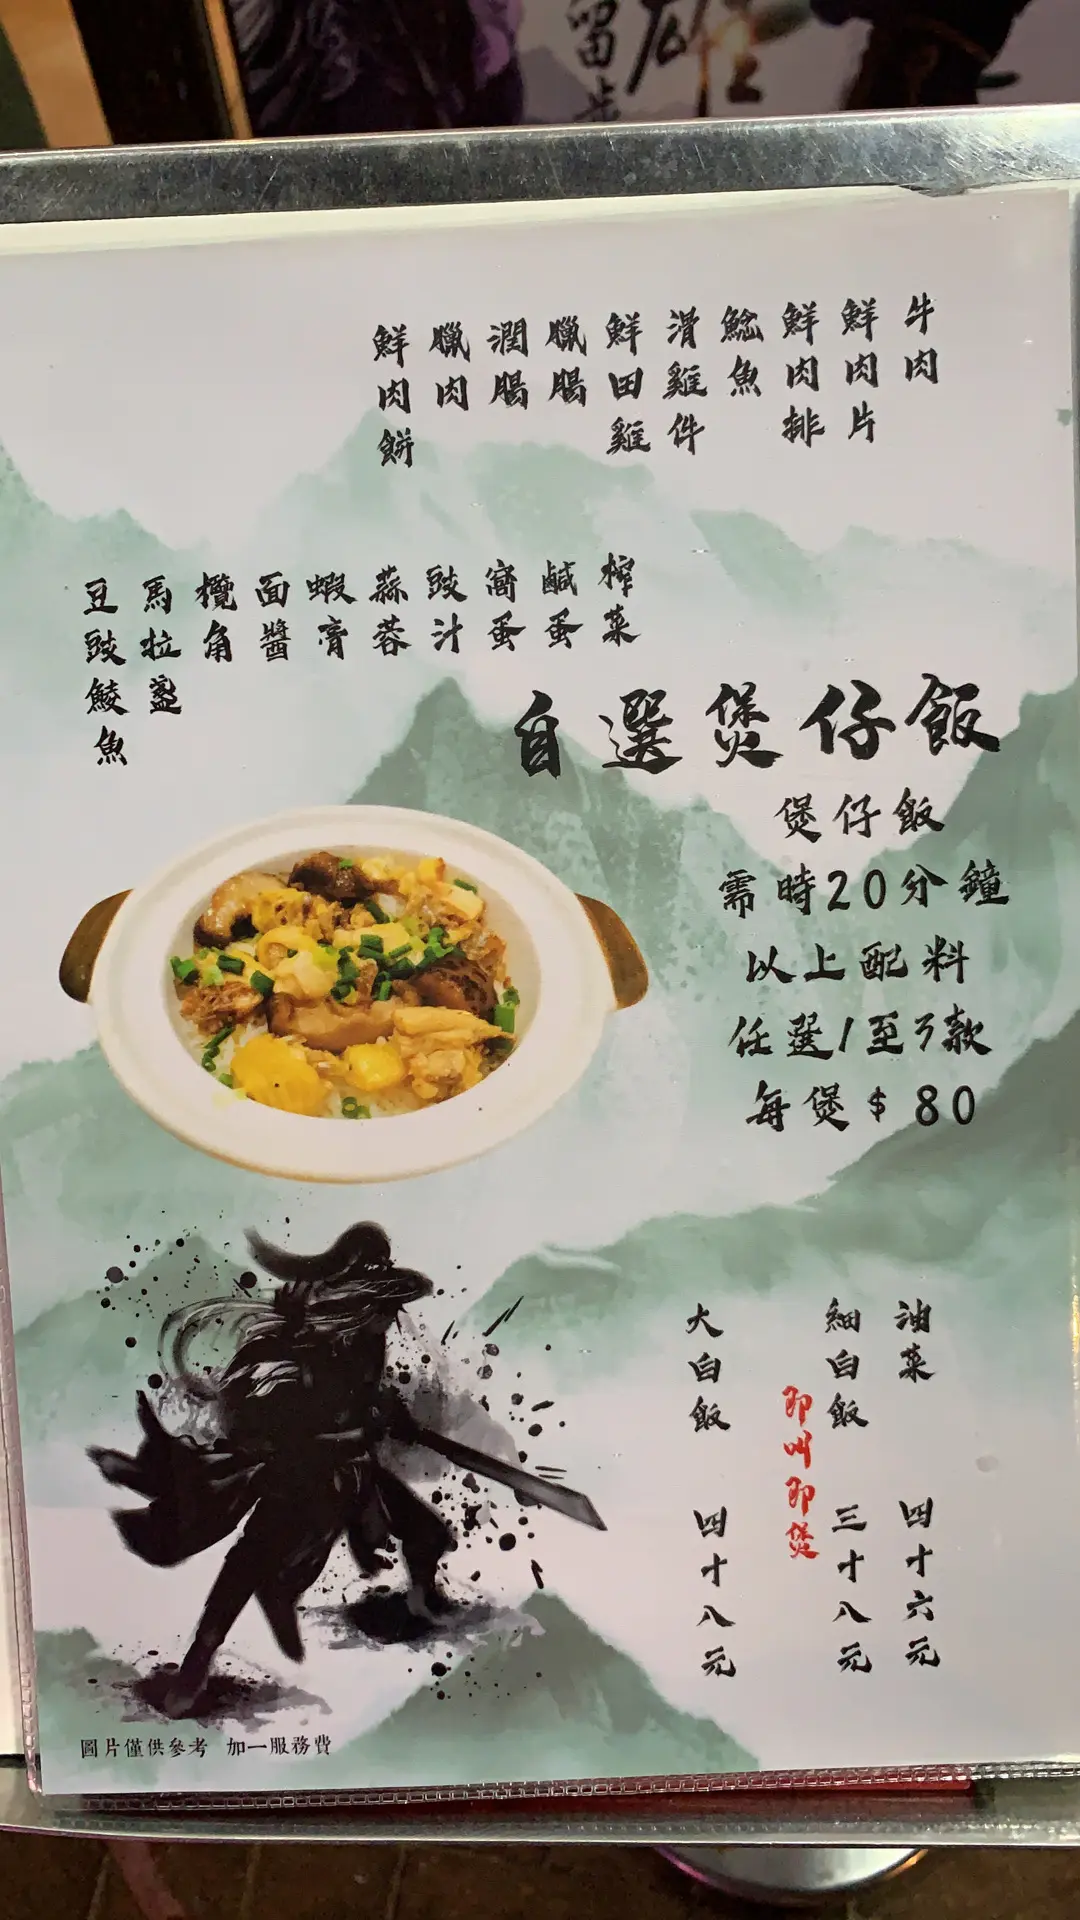 留步
牛肉
鮮肉片
鮮肉排
鯰魚
滑雞件
鮮田雞
臘腸
潤腸
臘肉
鮮肉餅
榨菜
鹹蛋
窩蛋
豉汁
蒜蓉
蝦膏
面醬
欖角
馬拉盞
豆豉鯪魚
自選煲仔飯
煲仔飯
需時20分鐘
以上配料
任選1至3款
每煲$80
油菜 四十六元
細白飯 三十八元
即叫即煲
大白飯 四十八元
圖片僅供參考 加一服務費